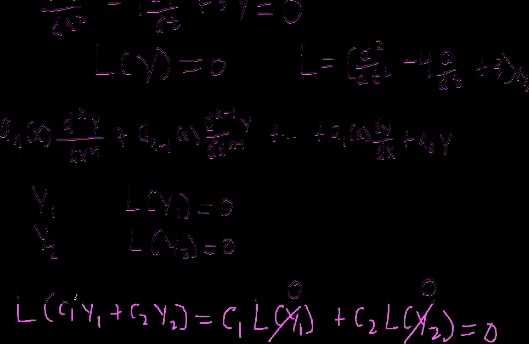 d²y/dt² - 4 dy/dt + 3y = 0
L(y) = 0 L = (d²/dt² - 4 d/dt + 3)y
aₙ(x) dⁿy/dxⁿ + aₙ₋₁(x) dⁿ⁻¹y/dxⁿ⁻¹ + ... + a₁(x) dy/dx + a₀y
Y₁ L(Y₁) = 0
Y₂ L(Y₂) = 0
0 0
L(C₁Y₁ + C₂Y₂) = C₁L(Y₁) + C₂L(Y₂) = 0